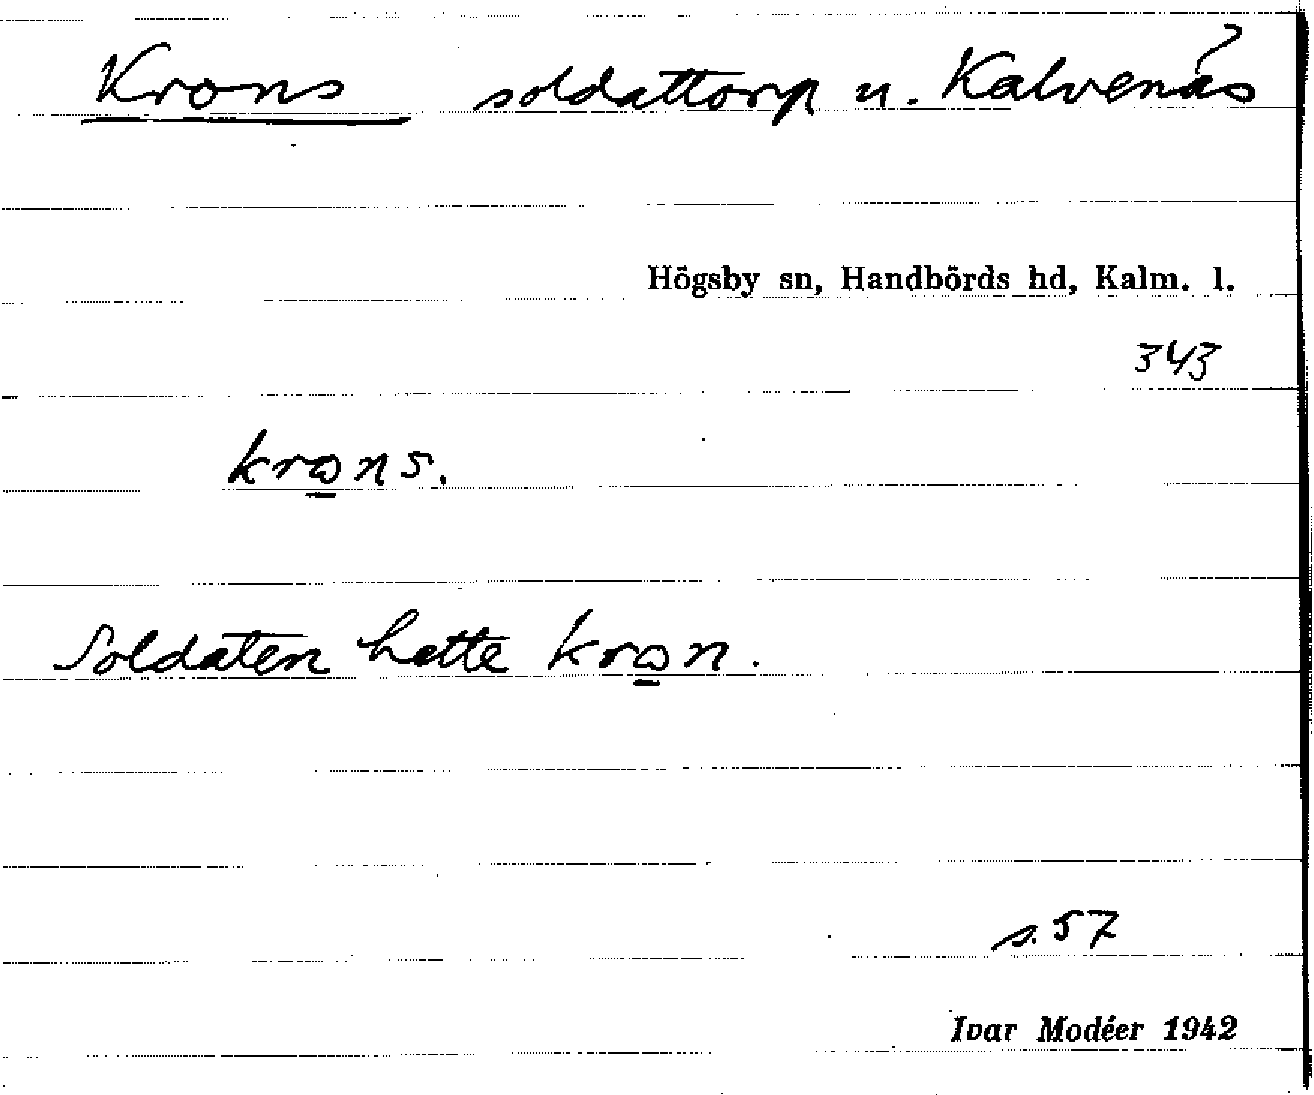 Krons soldattorp u. Kalvenäs
Högsby sn, Handbörds hd, Kalm. l.
343
kro̲ns.
Soldaten hette kro̲n.
s. 57
Ivar Modéer 1942